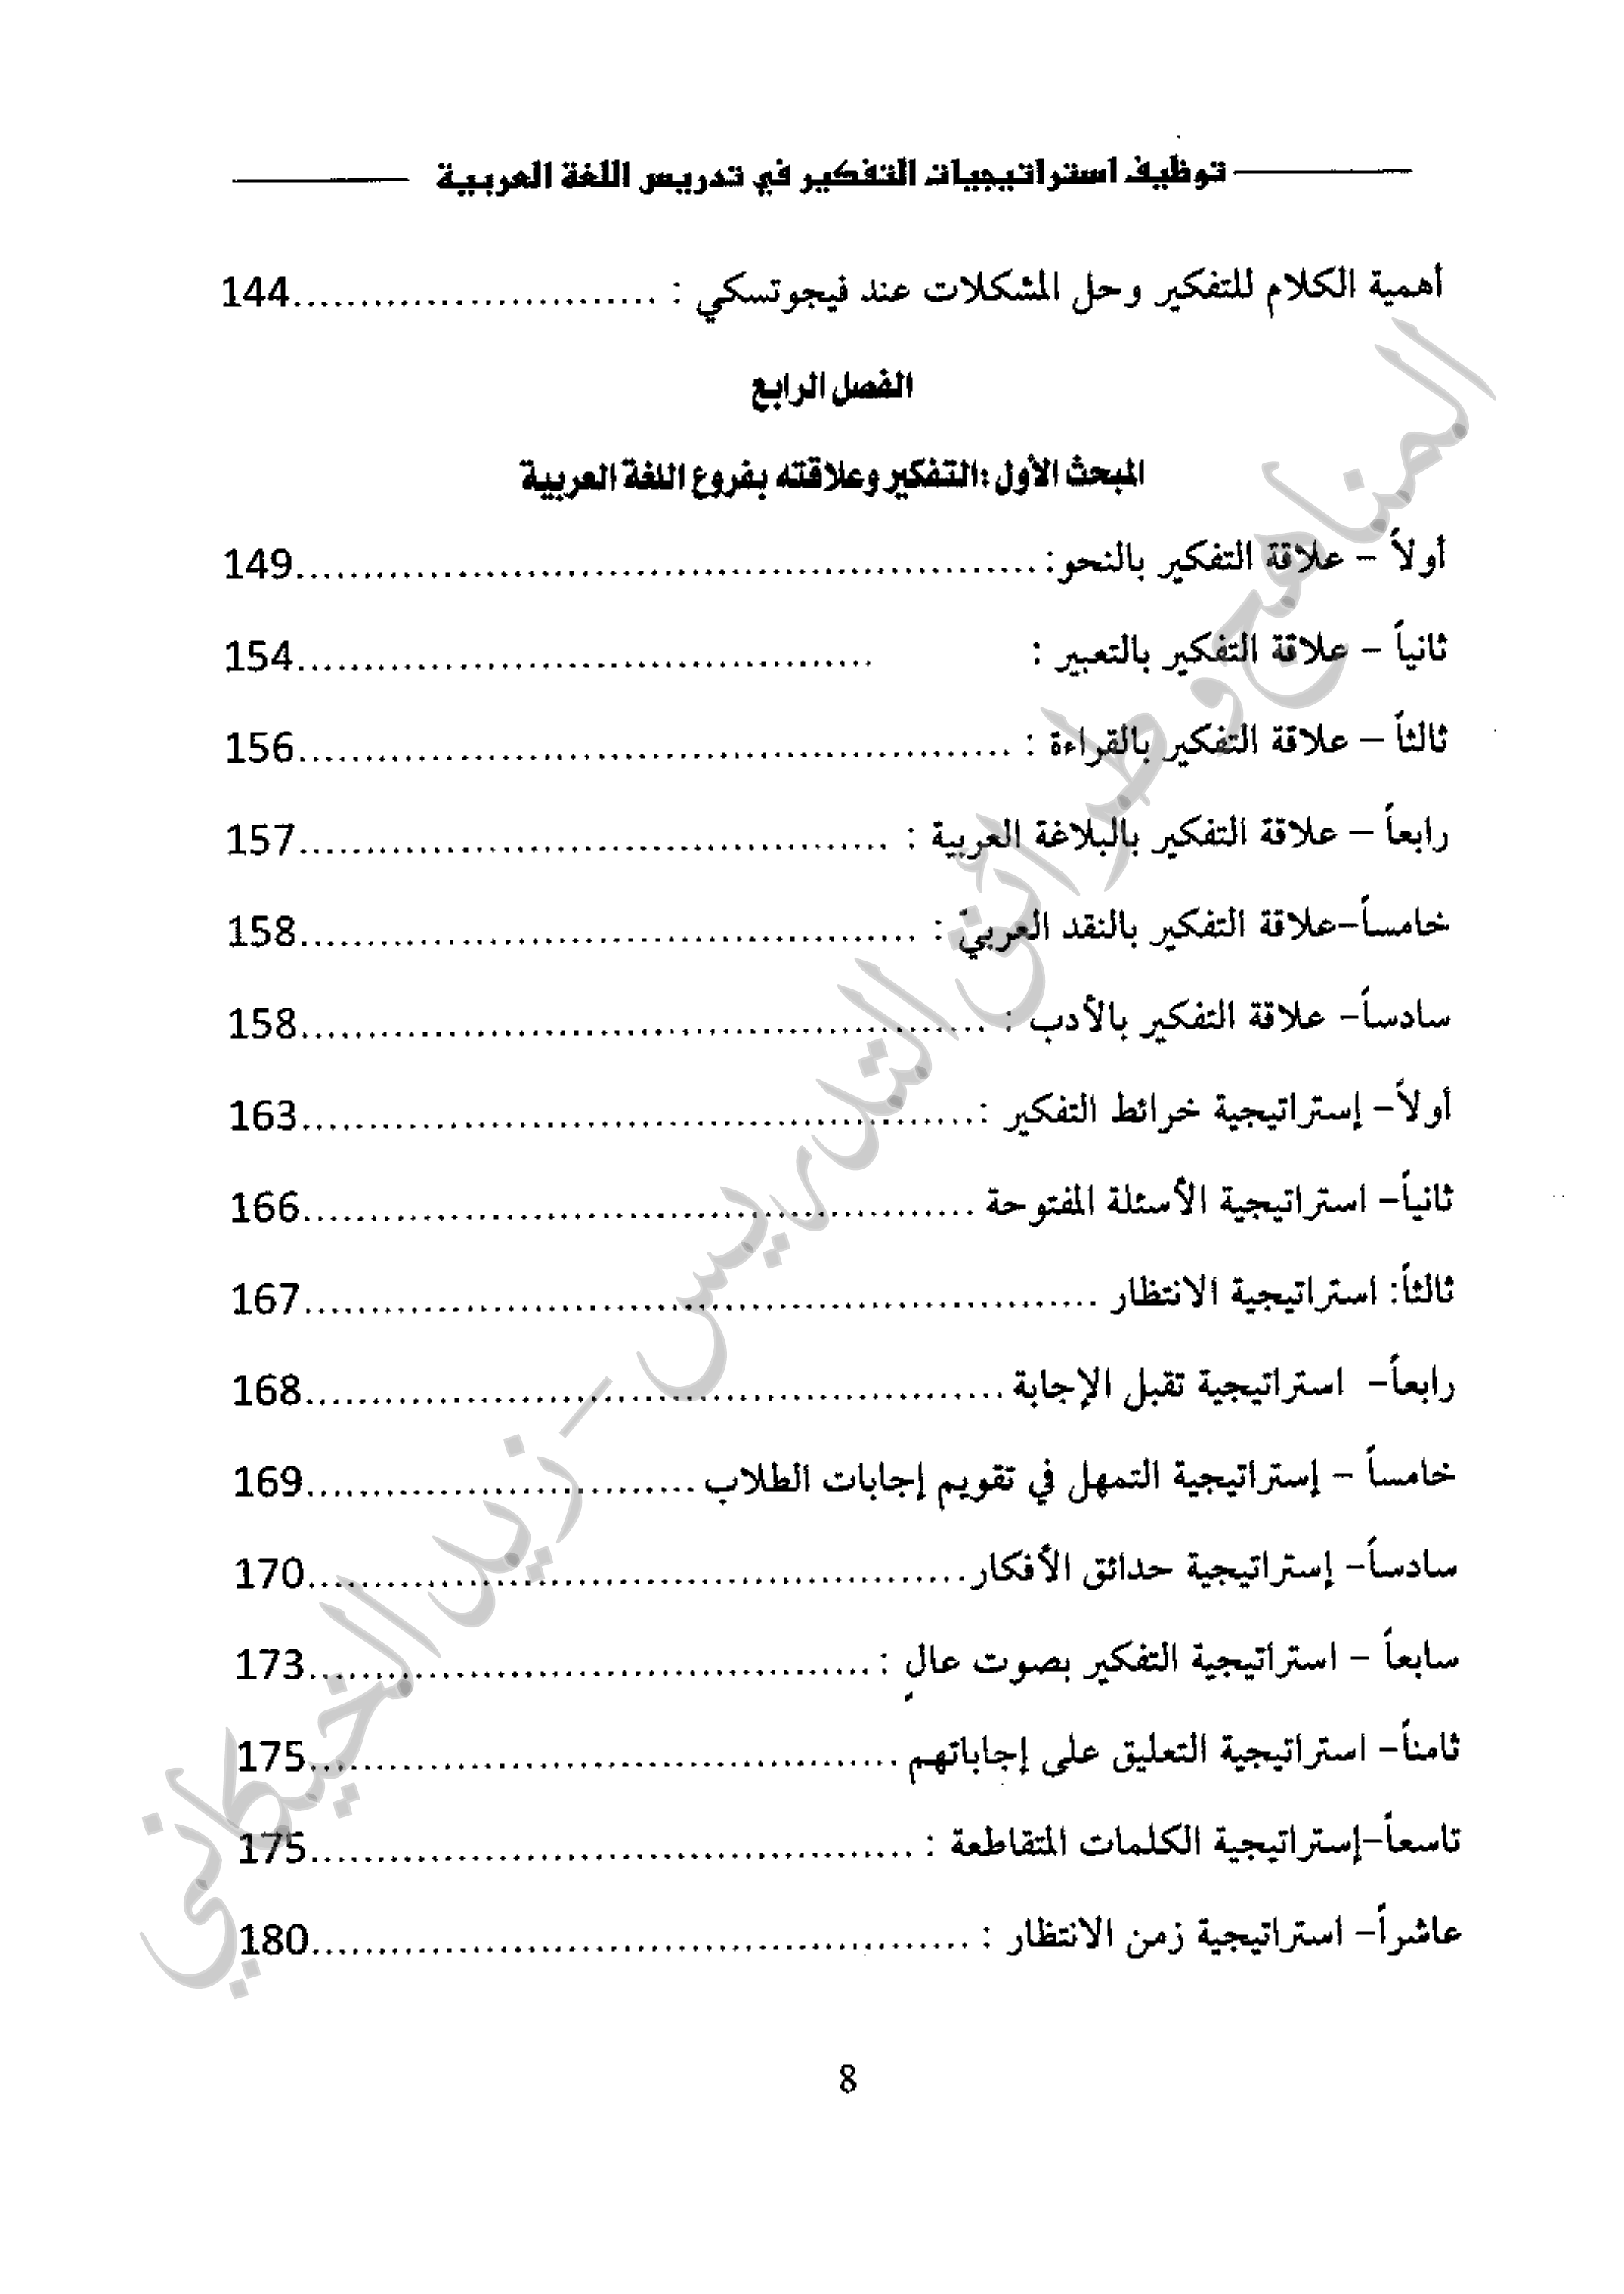 توظيف استراتيجيات التفكير في تدريس اللغة العربية
أهمية الكلام للتفكير وحل المشكلات عند فيجوتسكي : ...........................144
الفصل الرابع
المبحث الأول :التفكير وعلاقته بفروع اللغة العربية
أولاً – علاقة التفكير بالنحو: .......................................................149
ثانياً – علاقة التفكير بالتعبير : ...........................................154
ثالثاً – علاقة التفكير بالقراءة : .....................................................156
رابعاً – علاقة التفكير بالبلاغة العربية : ............................................157
خامساً–علاقة التفكير بالنقد العربيّ : ..............................................158
سادساً– علاقة التفكير بالأدب : ...................................................158
أولاً– إستراتيجية خرائط التفكير :..................................................163
ثانياً– استراتيجية الأسئلة المفتوحة ..................................................166
ثالثاً: استراتيجية الانتظار ...........................................................167
رابعاً– استراتيجية تقبل الإجابة ....................................................168
خامساً – إستراتيجية التمهل في تقويم إجابات الطلاب .............................169
سادساً– إستراتيجية حدائق الأفكار.................................................170
سابعاً – استراتيجية التفكير بصوت عالٍ : ..........................................173
ثامناً– استراتيجية التعليق على إجاباتهم ............................................175
تاسعاً–إستراتيجية الكلمات المتقاطعة : .............................................175
عاشراً– استراتيجية زمن الانتظار : .................................................180
المناهج وطرائق التدريس – زيد الخيكاني
8